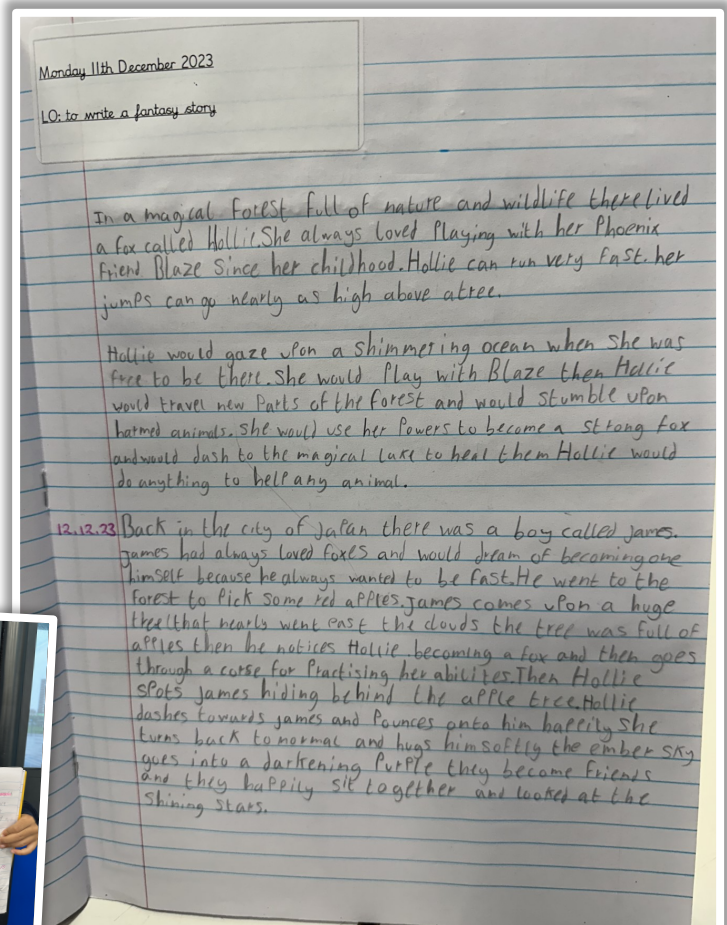 Monday 11th December 2023
LO: to write a fantasy story
In a magical forest full of nature and wildlife there lived
a fox called Hollie. She always loved Playing with her Phoenix
friend Blaze since her childhood. Hollie can run very fast. her
jumps can go nearly as high above a tree.
Hollie would gaze upon a shimmering ocean when she was
free to be there. She would Play with Blaze then Hollie
would travel new Parts of the forest and would stumble upon
harmed animals. She would use her Powers to become a strong fox
and would dash to the magical lake to heal them Hollie would
do anything to help any animal.
12.12.23 Back in the city of Japan there was a boy called James.
James had always loved foxes and would dream of becoming one
himself because he always wanted to be fast. He went to the
forest to Pick some red apples. James comes upon a huge
tree (that nearly went past the clouds the tree was full of
apples then he notices Hollie becoming a fox and then goes
through a corse for Practising her abilites. Then Hollie
spots James hiding behind the apple tree. Hollie
dashes towards James and Pounces onto him happily She
turns back to normal and hugs him softly the ember sky
goes into a darkening Purple they become friends
and they happily sit together and looked at the
shining stars.